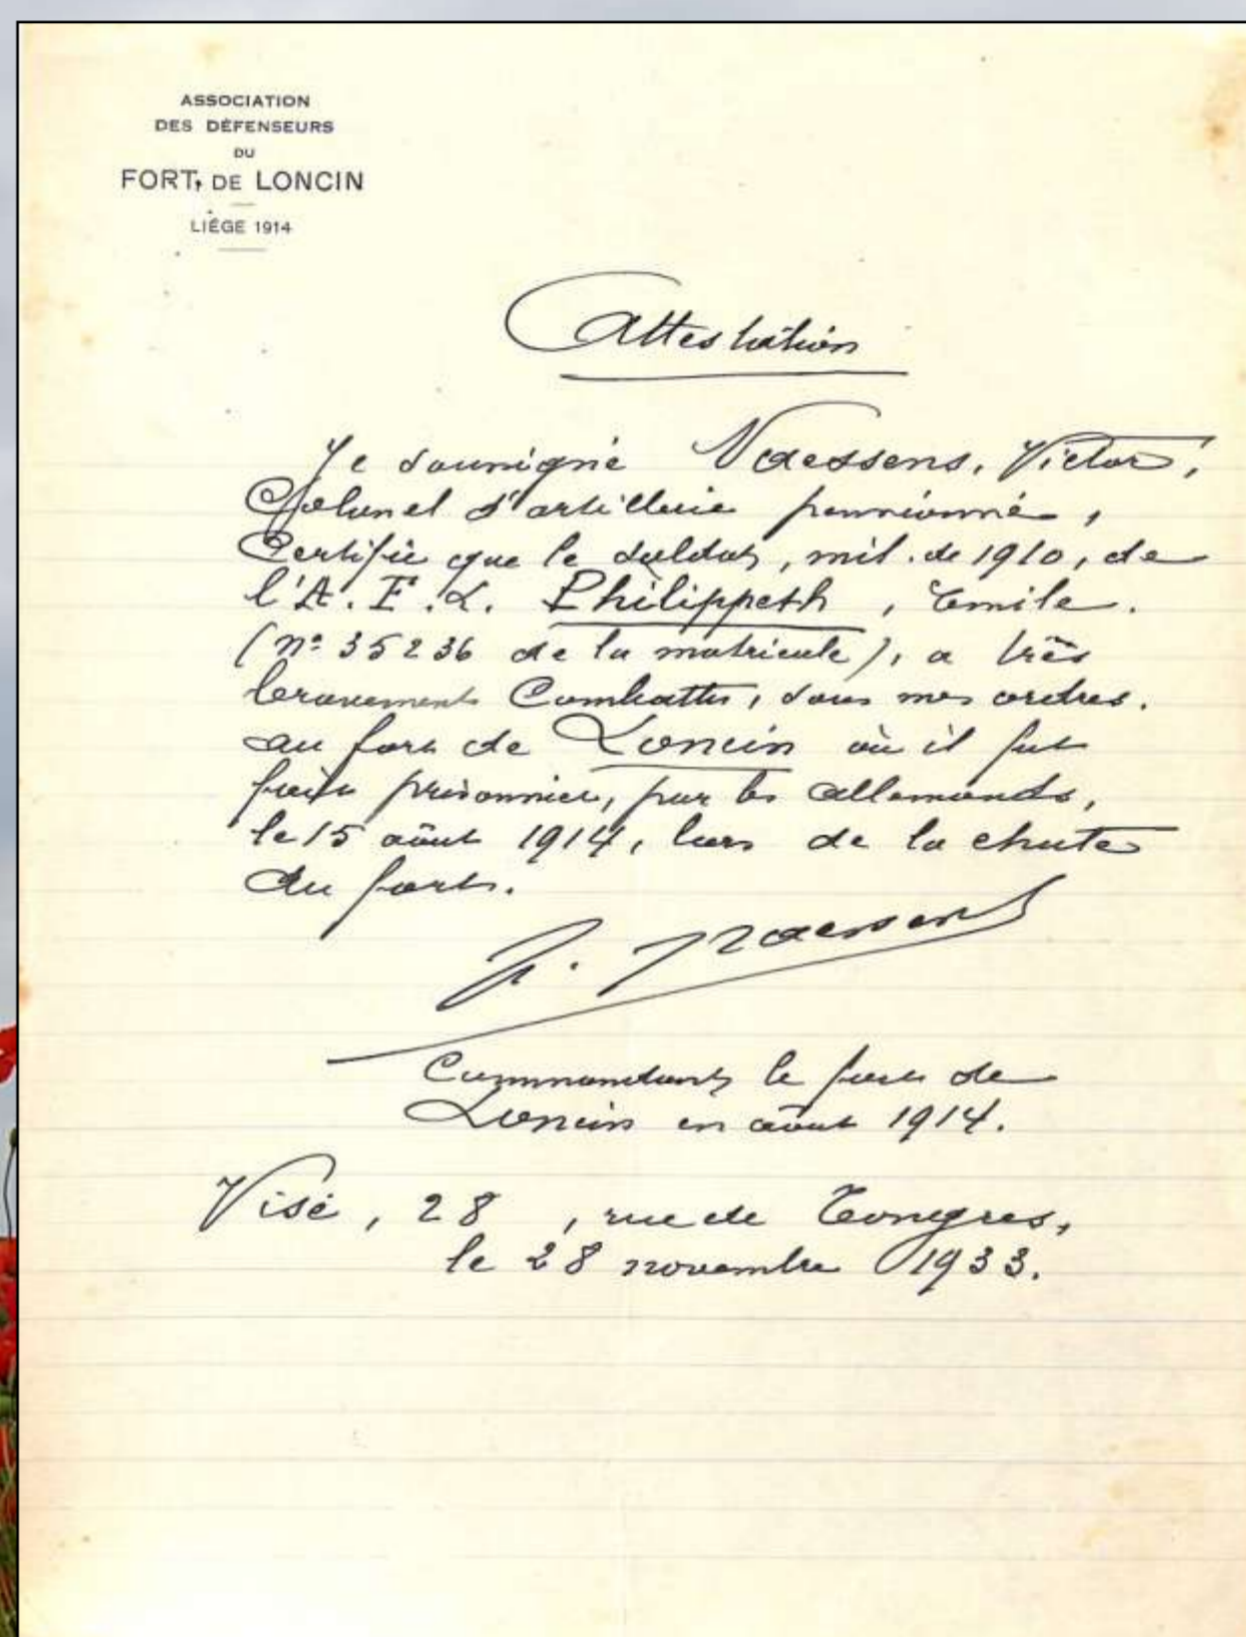 ASSOCIATION
DES DÉFENSEURS
DU
FORT DE LONCIN
LIÉGE 1914
Attestation
Je soussigné Naessens, Victor,
Colonel d'artillerie pensionné,
Certifie que le soldat, mil. de 1910, de
l'A. F. L. Philippeth, Emile.
(nº 35236 de la matricule), a très
bravement Combattu, sous mes ordres.
au fort de Loncin où il fut
fait prisonnier, par les allemands,
le 15 août 1914, lors de la chute
du fort.
V. Naessens
Commandant le fort de
Loncin en août 1914.
Visé, 28, rue de Tongres,
le 28 novembre 1933.